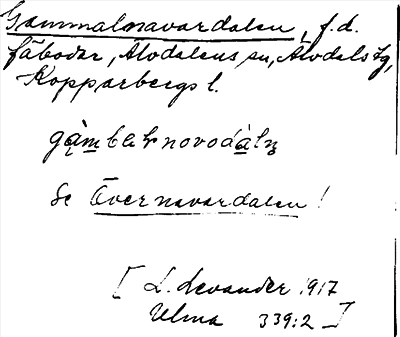 Gammalnavardalen, f.d.
fäbodar, Älvdalens sn, Älvdals tg,
Kopparbergs l.
gàmbelnovodàln
Se Övernavardalen!
[L. Levander 1917
Ulma 339:2]